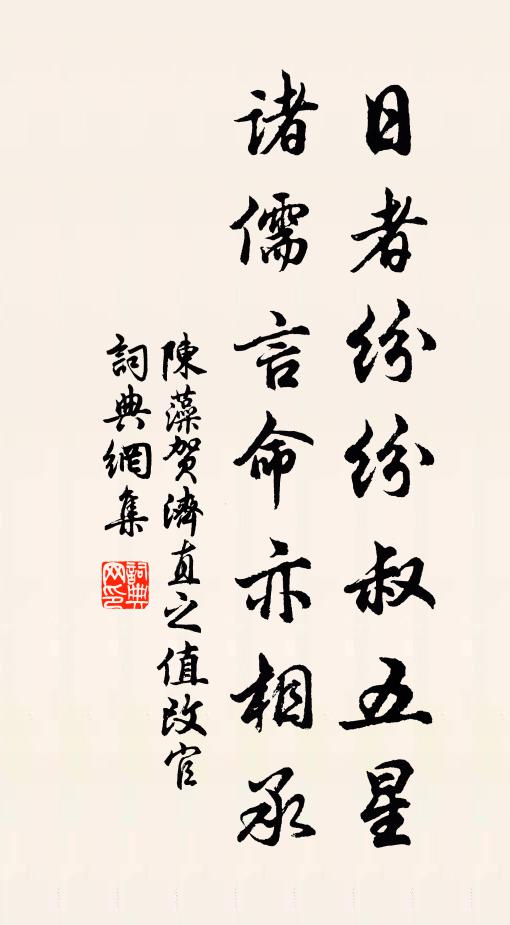 日者紛紛叔五星
諸儒言命亦相承
陳藻賀濟直之值改官
詞典網集
詞典网印